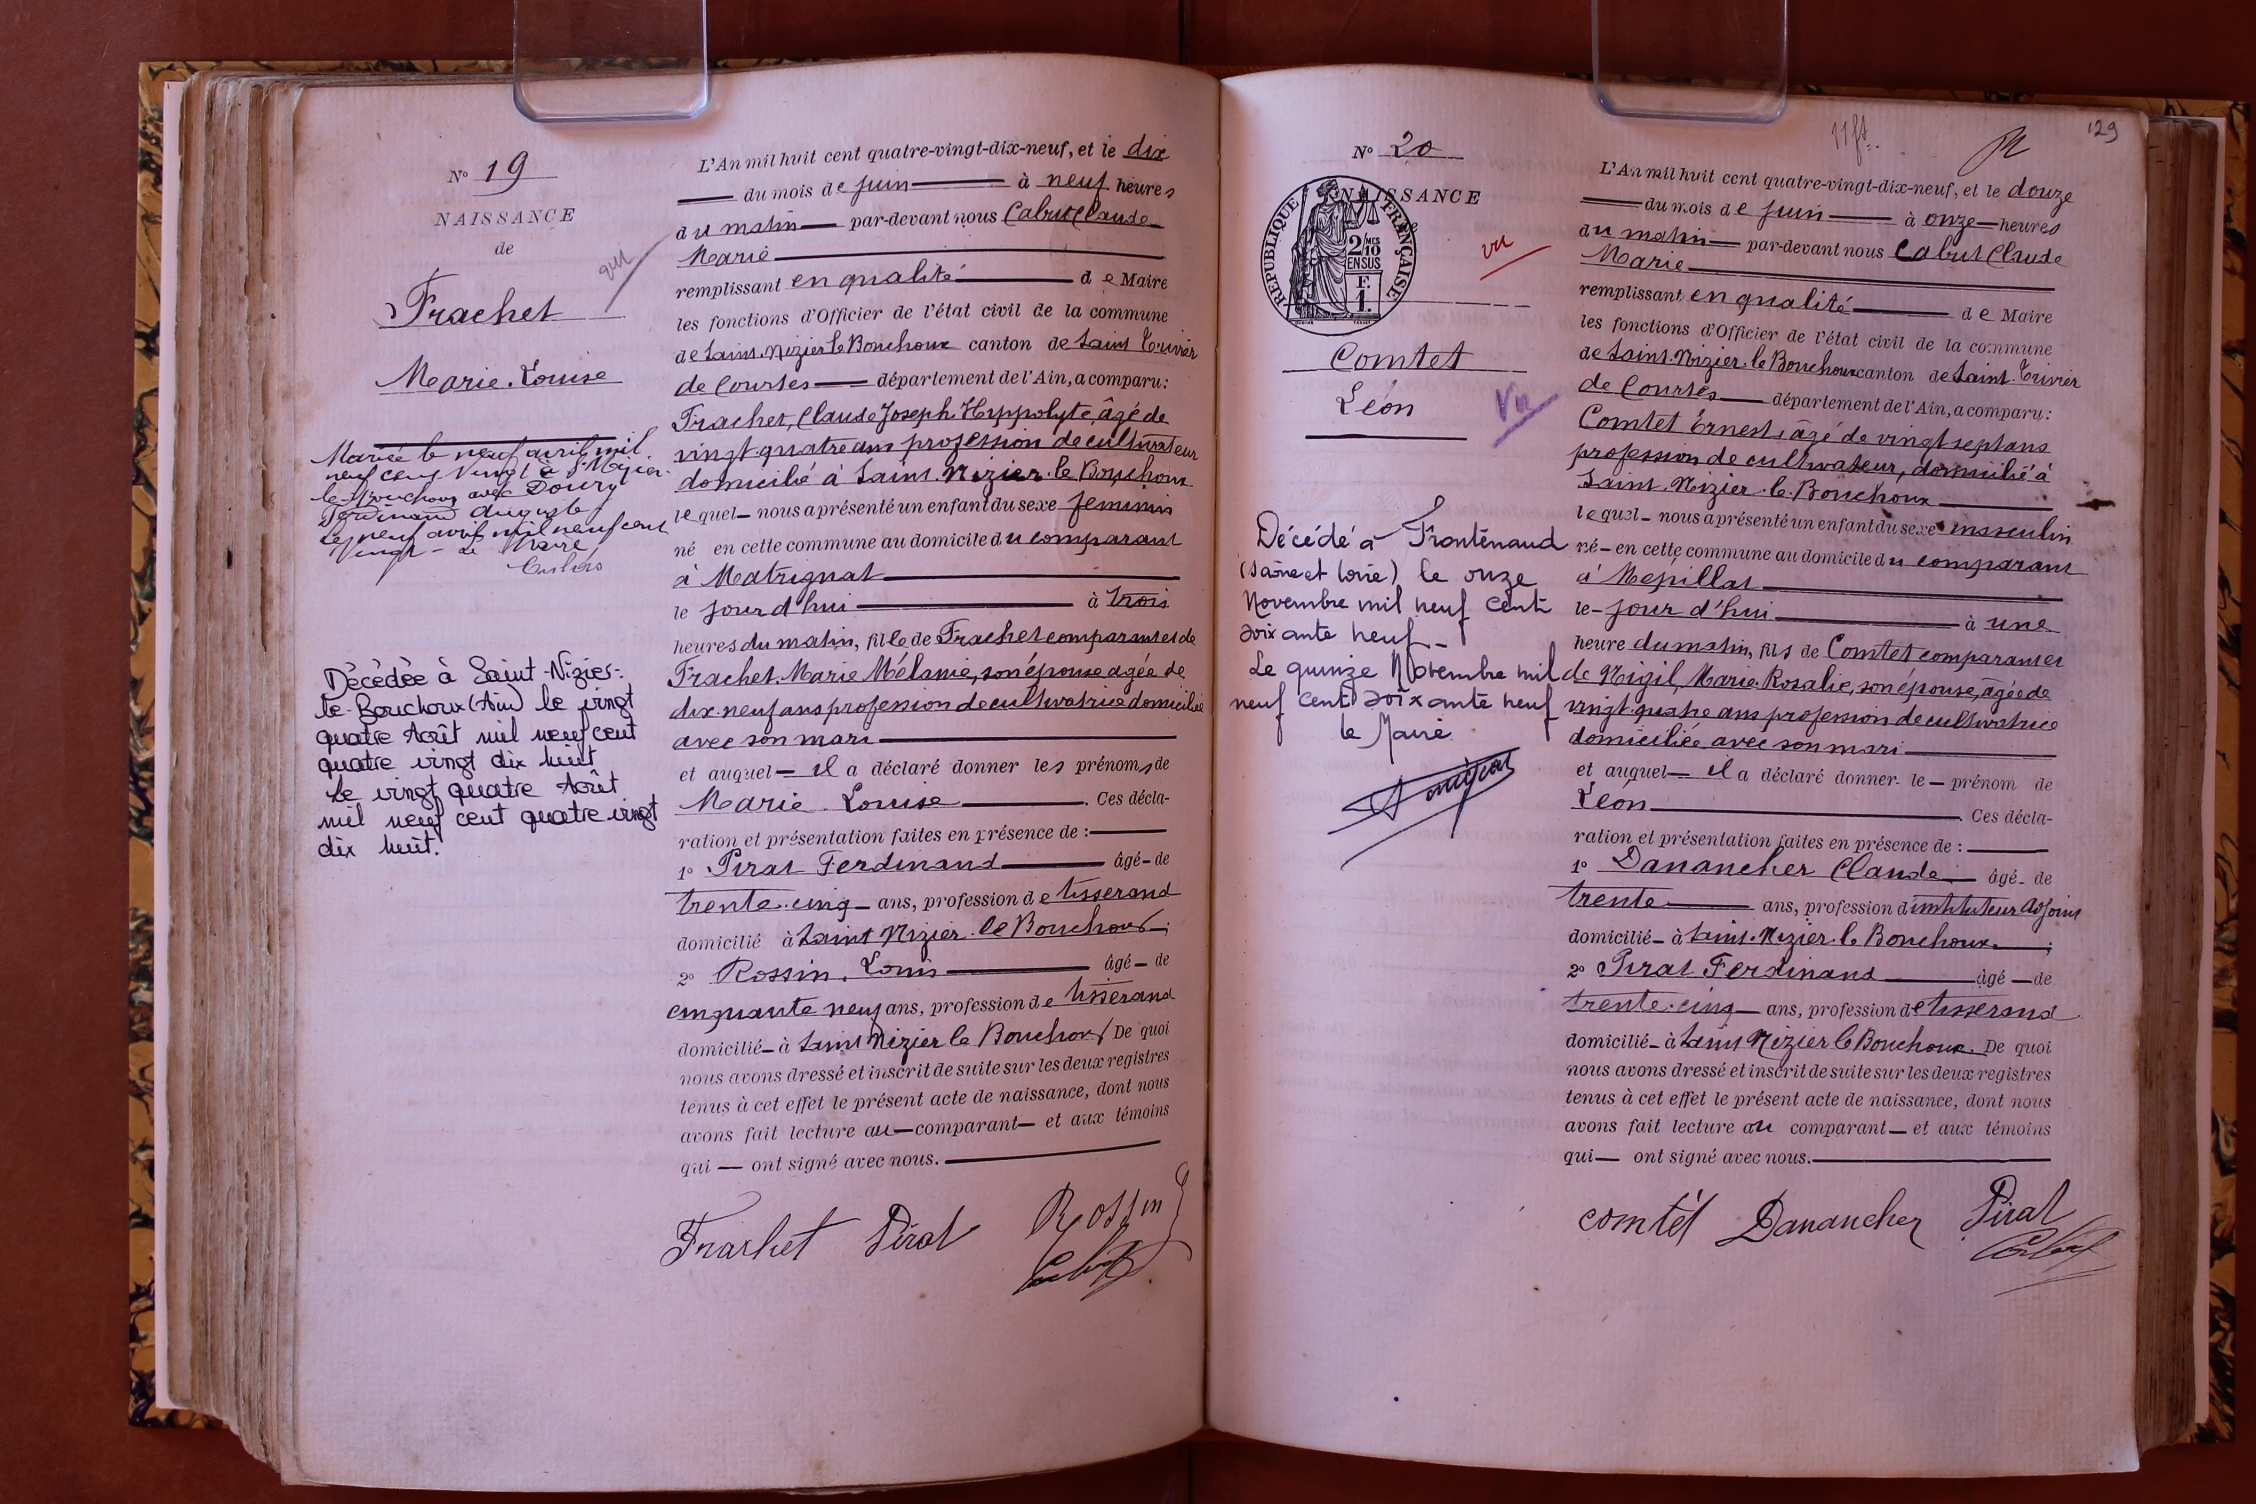 N° 19
NAISSANCE
de
Frachet
Marie-Louise
Mariée le neuf avril mil
neuf cent vingt à St Nizier
le-Bouchoux avec Doury
Ferdinand Auguste
Le neuf avril mil neuf cent
vingt - Le Maire
Décédée à Saint-Nizier-
le-Bouchoux (Ain) le vingt
quatre Août mil neuf cent
quatre vingt dix huit
Le vingt quatre Août
mil neuf cent quatre vingt
dix huit.
L'An mil huit cent quatre-vingt-dix-neuf, et le dix
du mois de juin à neuf heures
du matin par-devant nous Cabut Claude
Marie
remplissant en qualité de Maire
les fonctions d'Officier de l'état civil de la commune
de Saint-Nizier le Bouchoux canton de Saint Trivier
de Courtes département de l'Ain, a comparu:
Frachet, Claude Joseph Hyppolyte, âgé de
vingt-quatre ans profession de cultivateur
domicilié à Saint-Nizier-le Bouchoux
lequel nous a présenté un enfant du sexe feminin
né en cette commune au domicile du comparant
à Matrignat
le jour d'hui à trois
heures du matin, fille de Frachet comparant et de
Frachet Marie Mélanie, son épouse agée de
dix-neuf ans profession de cultivatrice domiciliée
avec son mari
et auquel il a déclaré donner les prénoms de
Marie Louise. Ces décla-
ration et présentation faites en présence de :
1° Pirat Ferdinand âgé de
trente-cinq ans, profession de tisserand
domicilié à Saint Nizier-le Bouchoux ;
2° Rossin, Louis âgé de
cinquante neuf ans, profession de tisserand
domicilié à Saint Nizier le Bouchoux De quoi
nous avons dressé et inscrit de suite sur les deux registres
tenus à cet effet le présent acte de naissance, dont nous
avons fait lecture au comparant et aux témoins
qui ont signé avec nous.
Frachet Pirat Rossin
Cabut
129
N° 20
NAISSANCE
RÉPUBLIQUE FRANÇAISE
2 MES
10
EN SUS
F.
1.
vu
Comtet
Léon
Vu
Décédé à Frontenaud
(Saône et Loire) le onze
Novembre mil neuf cent
soixante neuf
Le quinze Novembre mil
neuf cent soixante neuf
le Maire
L'An mil huit cent quatre-vingt-dix-neuf, et le douze
du mois de juin à onze heures
du matin par-devant nous Cabut Claude
Marie
remplissant en qualité de Maire
les fonctions d'Officier de l'état civil de la commune
de Saint-Nizier-le Bouchoux canton de Saint-Trivier
de Courtes département de l'Ain, a comparu:
Comtet Ernest, âgé de vingt sept ans
profession de cultivateur, domicilié à
Saint-Nizier-le-Bouchoux
lequel nous a présenté un enfant du sexe masculin
né en cette commune au domicile du comparant
à Mépillat
le jour d'hui à une
heure du matin, fils de Comtet comparant et
de Nigil, Marie-Rosalie, son épouse, âgée de
vingt-quatre ans profession de cultivatrice
domiciliée avec son mari
et auquel il a déclaré donner le prénom de
Léon Ces décla-
ration et présentation faites en présence de :
1° Danancher Claude âgé de
trente ans, profession d'instituteur adjoint
domicilié à Saint-Nizier-le Bouchoux ;
2° Pirat Ferdinand âgé de
trente-cinq ans, profession de tisserand
domicilié à Saint Nizier le Bouchoux. De quoi
nous avons dressé et inscrit de suite sur les deux registres
tenus à cet effet le présent acte de naissance, dont nous
avons fait lecture au comparant et aux témoins
qui ont signé avec nous.
Comtet Danancher Pirat
Cabut